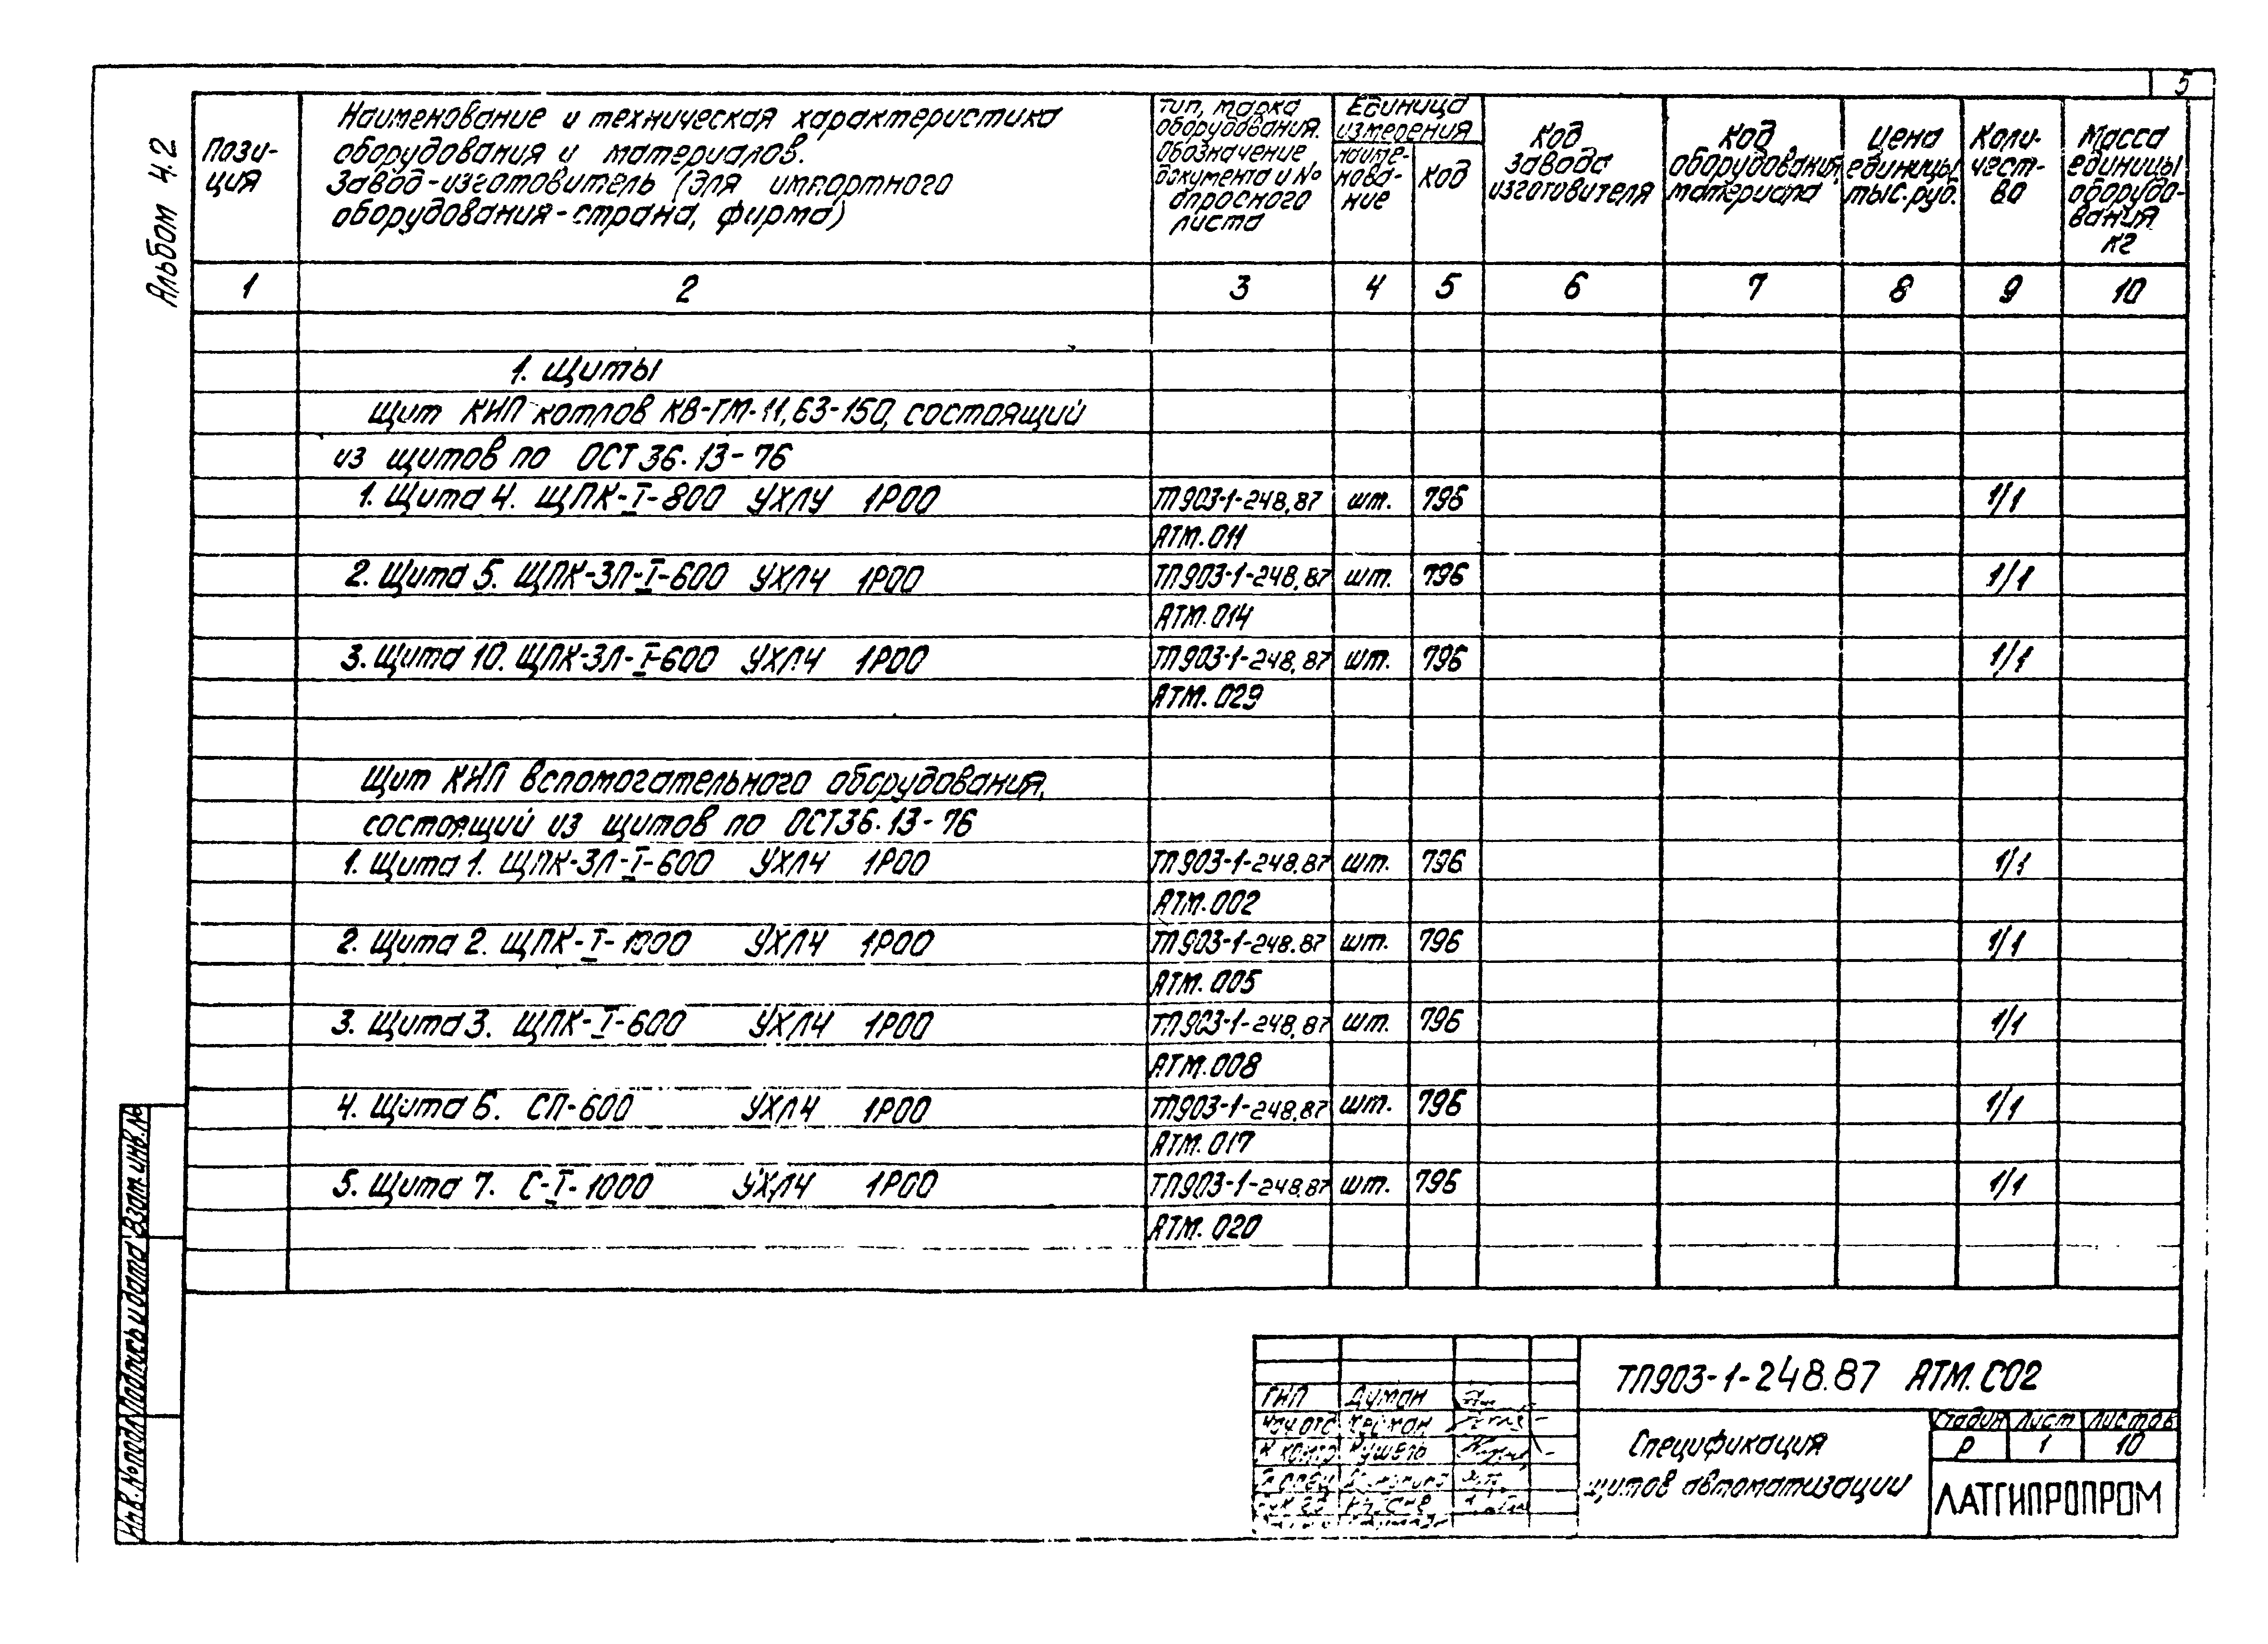 5
Альбом 4.2
Пози-
ция
Наименование и техническая характеристика
оборудования и материалов.
Завод-изготовитель (для импортного
оборудования-страна, фирма)
Тип, марка
оборудования.
Обозначение
документа и №
опросного
листа
Единица
измерения
наиме-
нова-
ние
Код
Код
завода
изготовителя
Код
оборудования,
материала
Цена
единицы
тыс.руб.
Коли-
чест-
во
Масса
единицы
оборудо-
вания
кг
1 2 3 4 5 6 7 8 9 10
1. Щиты
Щит КИП котлов КВ-ГМ-11,63-150, состоящий
из щитов по ОСТ 36.13-76
1. Щита 4. ЩПК-I-800 УХЛ4 1Р00 ТП903-1-248.87 шт. 796 1/1
АТМ.011
2. Щита 5. ЩПК-ЗП-I-600 УХЛ4 1Р00 ТП903-1-248.87 шт. 796 1/1
АТМ.014
3. Щита 10. ЩПК-ЗЛ-I-600 УХЛ4 1Р00 ТП903-1-248.87 шт. 796 1/1
АТМ.029
Щит КИП вспомогательного оборудования,
состоящий из щитов по ОСТ36.13-76
1. Щита 1. ЩПК-ЗЛ-I-600 УХЛ4 1Р00 ТП903-1-248.87 шт. 796 1/1
АТМ.002
2. Щита 2. ЩПК-I-1000 УХЛ4 1Р00 ТП903-1-248.87 шт. 796 1/1
АТМ.005
3. Щита 3. ЩПК-I-600 УХЛ4 1Р00 ТП903-1-248.87 шт. 796 1/1
АТМ.008
4. Щита 6. СП-600 УХЛ4 1Р00 ТП903-1-248.87 шт. 796 1/1
АТМ.017
5. Щита 7. С-I-1000 УХЛ4 1Р00 ТП903-1-248.87 шт. 796 1/1
АТМ.020
Инв.№подл. Подпись и дата Взам.инв.№
ГИП Думан
Нач.отд
Н.контр Кушель
Гл.спец
Рук.гр
ТП903-1-248.87 АТМ.СО2
Спецификация
щитов автоматизации
Стадия Лист Листов
Р 1 10
ЛАТГИПРОПРОМ